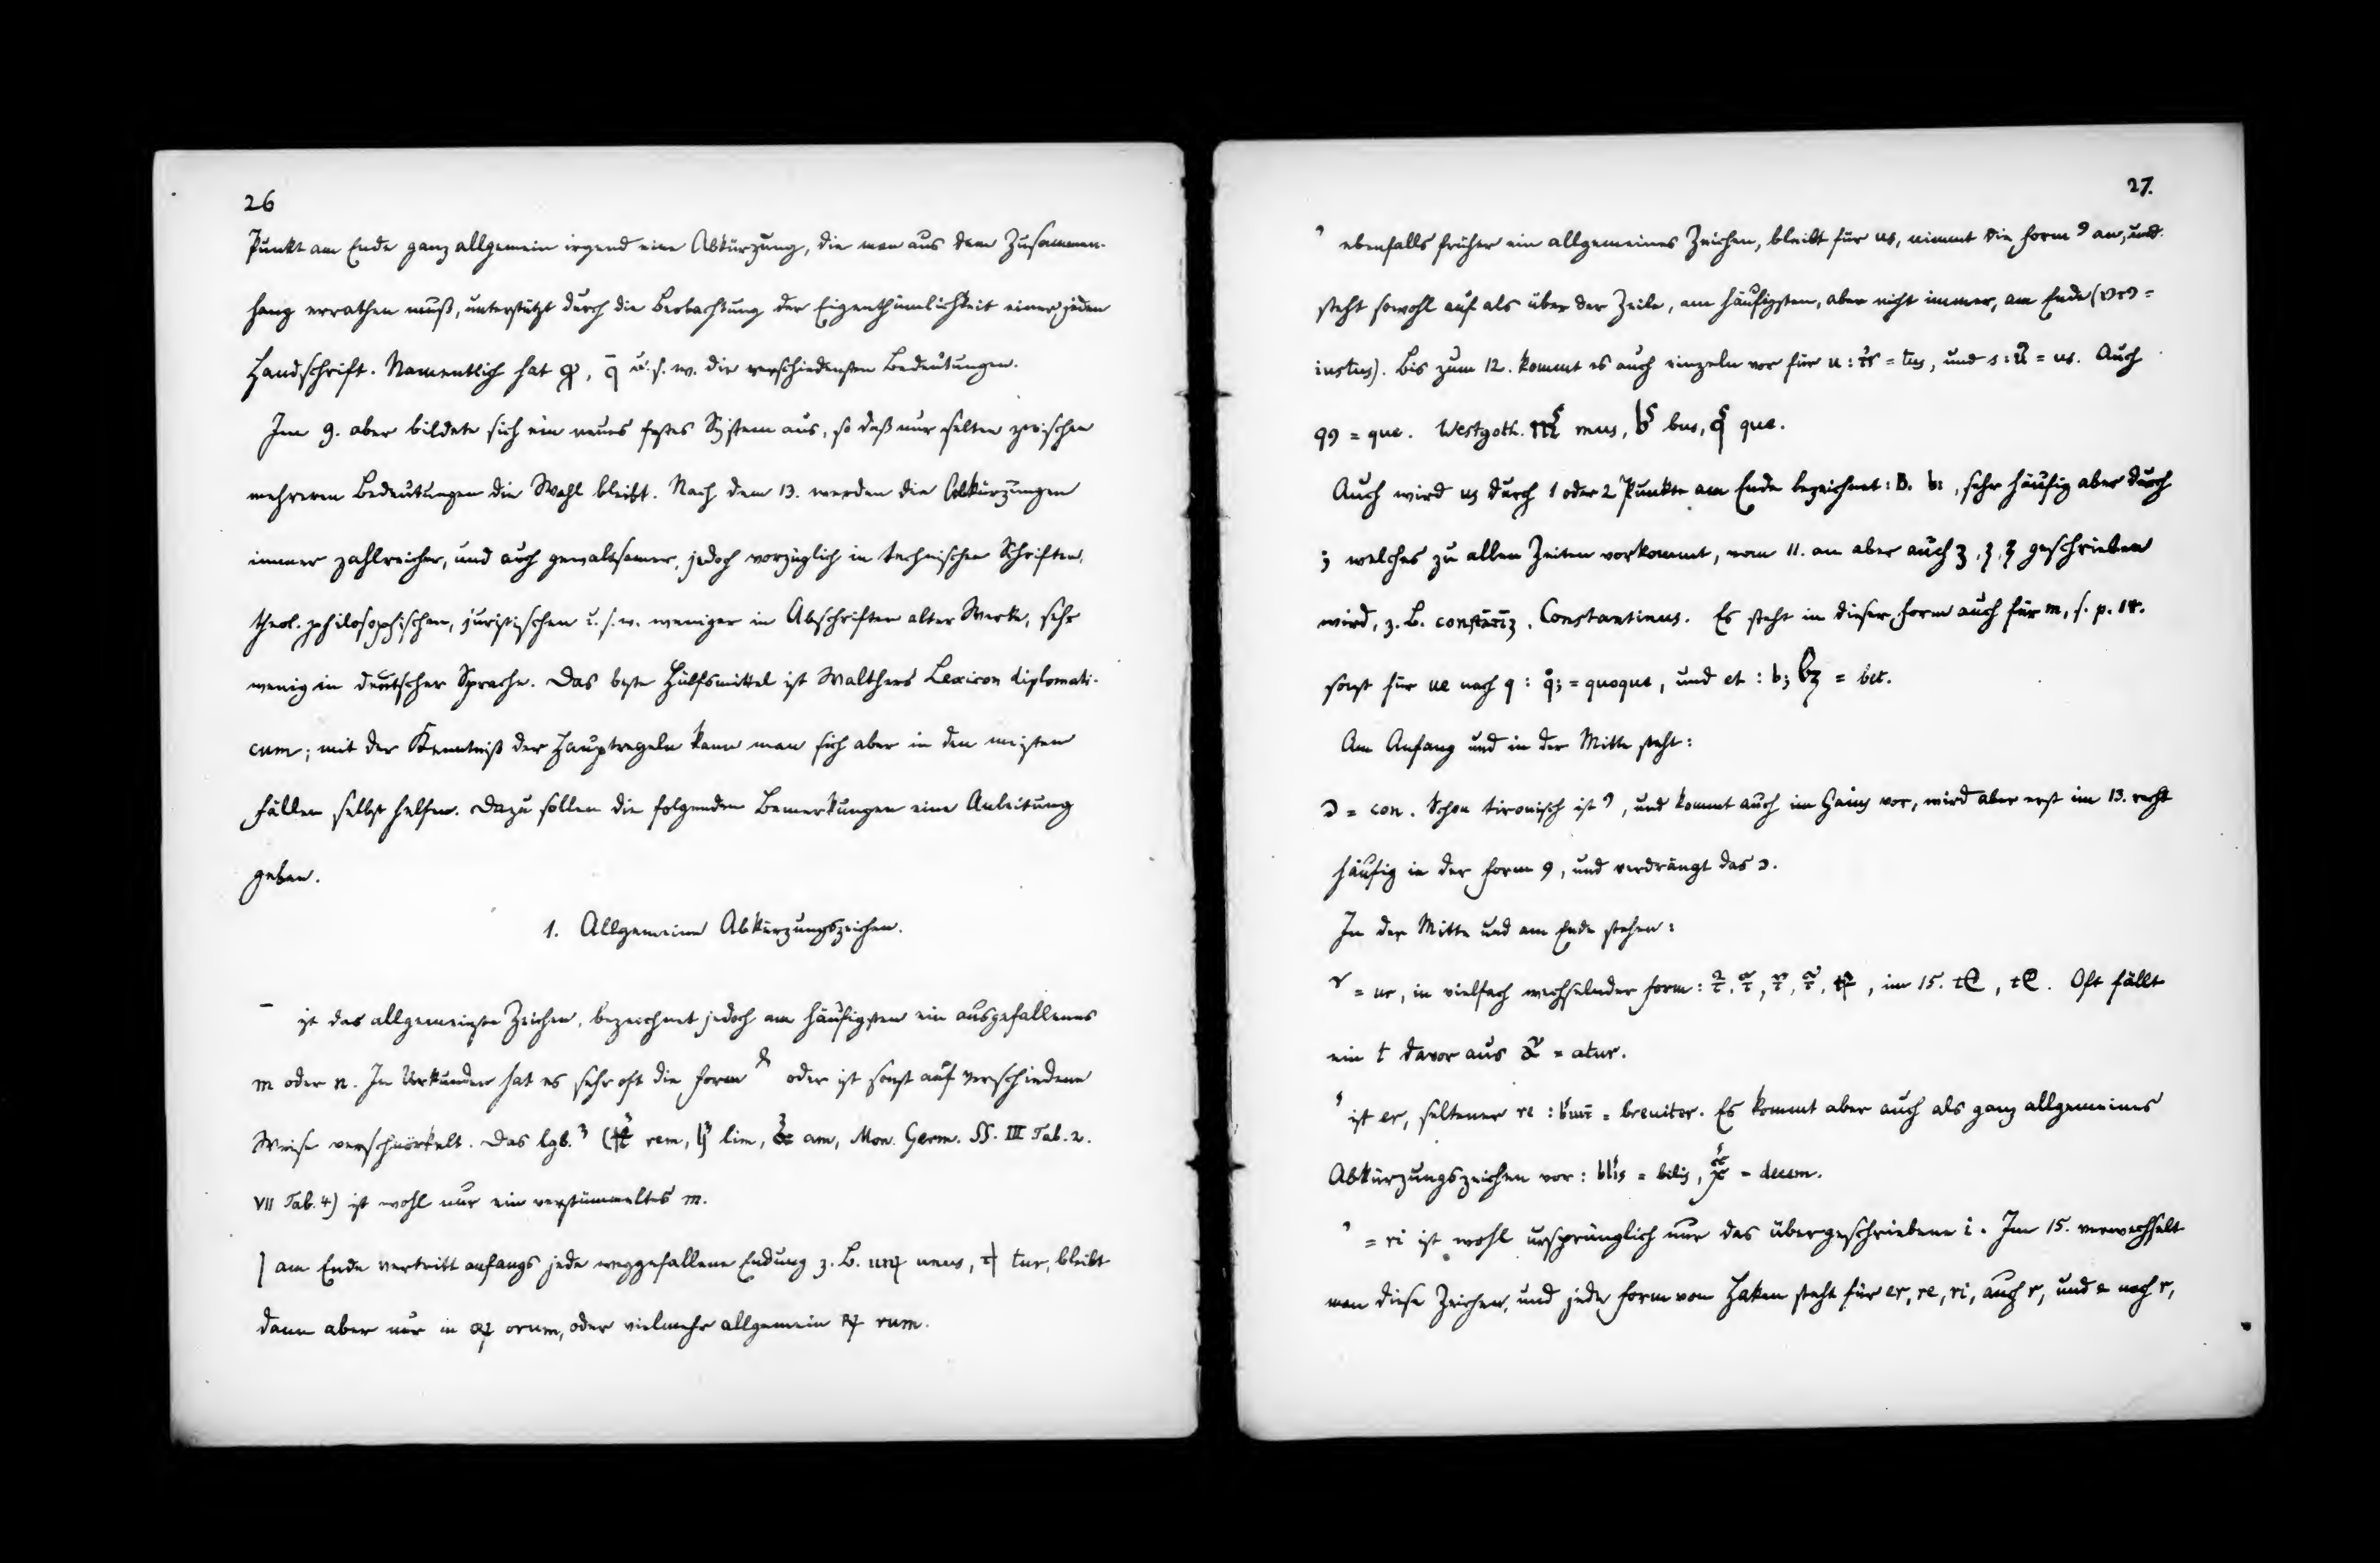 26
Punkt am Ende ganz allgemein irgend eine Abkürzung, die man aus dem Zusammen-
hang errathen muß, unterstützt durch die Beobachtung der Eigenthümlichkeit einer jeden
Handschrift. Namentlich hat q̄ u. s. w. die verschiedensten Bedeutungen.
Im 9. aber bildete sich ein neues festes System aus, so daß nur selten zwischen
mehreren Bedeutungen die Wahl bleibt. Nach dem 13. werden die Abkürzungen
immer zahlreicher, und auch gewaltsamer, jedoch vorzüglich in technischen Schriften,
theol. philosophischen, juristischen u. s. w. weniger in Abschriften alter Werke, sehr
wenig in deutscher Sprache. Das beste Hülfsmittel ist Walthers Lexicon diplomati-
cum; mit der Kenntniß der Hauptregeln kann man sich aber in den meisten
Fällen selbst helfen. Dazu sollen die folgenden Bemerkungen eine Anleitung
geben.
1. Allgemeine Abkürzungszeichen.
¯ ist das allgemeinste Zeichen, bezeichnet jedoch am häufigsten ein ausgefallenes
m oder n. In Urkunden hat es sehr oft die Form oder ist sonst auf verschiedene
Weise verschnörkelt. Das lgb. ³ ( rem, lim, am, Mon. Germ. SS. III Tab. 2.
VII Tab. 4) ist wohl nur ein verstümmeltes m.
| am Ende vertritt anfangs jede weggefallene Endung z. B. unus, tur, bleibt
dann aber nur in orum, oder vielmehr allgemein rum.
27.
’ ebenfalls früher ein allgemeines Zeichen, bleibt für us, nimmt die Form 9 an, und
steht sowohl auf als über der Zeile, am häufigsten, aber nicht immer, am Ende ( =
iustus). Bis zum 12. kommt es auch einzeln vor für u: = tus, und s: = us. Auch
q9 = que. Westgoth. mus, bus, que.
Auch wird us durch 1 oder 2 Punkte am Ende bezeichnet: B. b: , sehr häufig aber durch
; welches zu allen Zeiten vorkommt, vom 11. an aber auch geschrieben
wird, z. B. Constantinus. Es steht in dieser Form auch für m, s. p. 18.
sonst für ue nach q: = quoque, und et: b; = bet.
Am Anfang und in der Mitte steht:
ↄ = con. Schon tironisch ist 9, und kommt auch im Gaius vor, wird aber erst im 13. recht
häufig in der Form 9, und verdrängt das ↄ.
In der Mitte und am Ende stehen:
= ur, in vielfach wechselnder Form: , im 15. Oft fällt
ein t davor aus = atur.
’ ist er, seltener re: = breviter. Es kommt aber auch als ganz allgemeines
Abkürzungszeichen vor: bl’is = bilis, = decem.
’ = ri ist wohl ursprünglich nur das übergeschriebene i. Im 15. verwechselt
man diese Zeichen, und jede Form von Haken steht für er, re, ri, auch r, und e nach r,